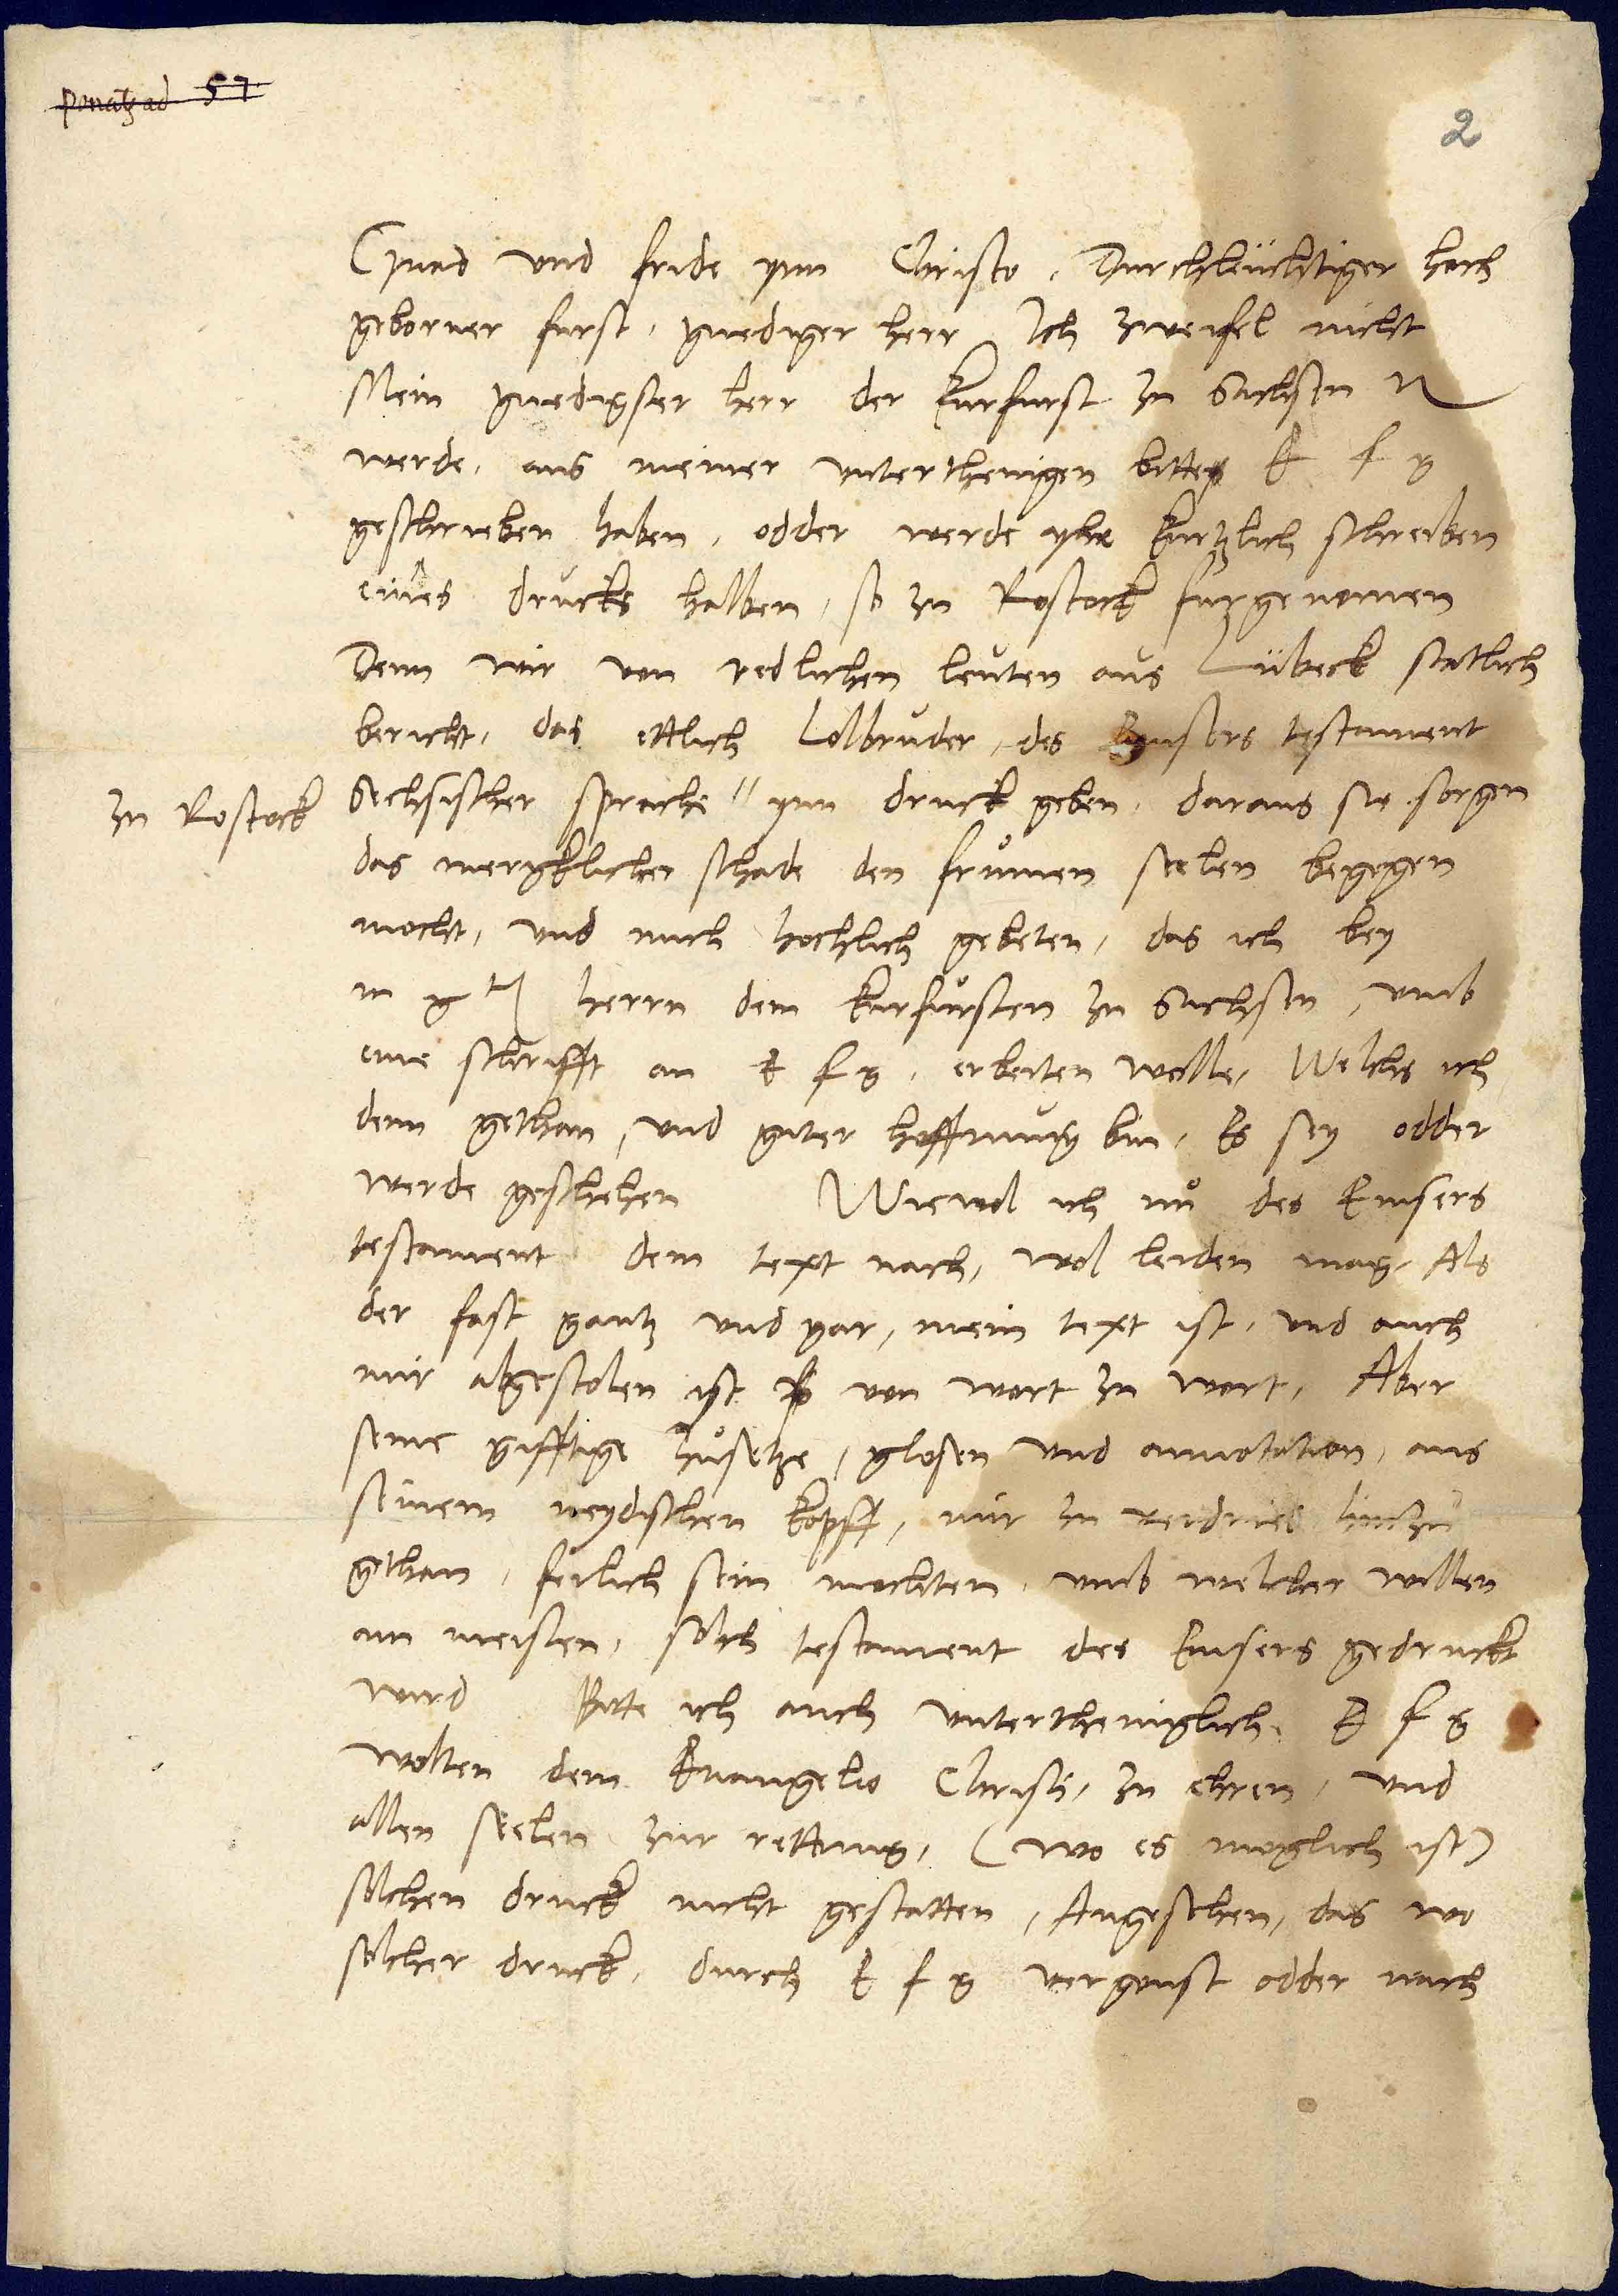 ponatz ad 57
2
Gnad vnd fride ynn Christo. Durchleuchtiger hoch
geborner furst, gnediger herr Ich zweifel nicht
Mein gnedigster herr der kurfurst zu Sachsen
werde, aus meiner vnterthenigen bitte E f g
geschrieben haben, odder werde yhe kurtzlich schreiben
eines drucks halben, so zu Rostock furgenomen
Denn wir von redlichen leuten aus Lübeck statlich
bericht, das ettlich Lolbruder, des Emsers testament
zu Rostock
Sechsischer sprache " ynn druck geben, daraus sie sorgen
das mergklicher schade den frumen seelen begegen
mocht, vnd mich hochlich gebeten, das ich bey
m g herrn dem kurfursten zu Sachsen, vmb
eine schrifft an E f g. erbeiten wolle, Welchs ich
denn gethan, vnd guter hoffnung bin, Es sey odder
werde geschehen Wiewol ich nu des Emsers
testament dem text nach, wol leiden mag, Als
der fast gantz vnd gar, mein text ist, vnd auch
mir abgestolen ist von wort zu wort, Aber
seine gifftige zusetze, glosen vnd annotation, aus
seinem neydischen kopff, mir zu verdries hinzu
gthan, ferlich sein mochten, vmb welcher willen
am meisten, solch testament des Emsers gedruckt
wird Bitte ich auch vntertheniglich. E f g
wolten dem Euangelio Christi, zu ehren, vnd
allen seelen zur rettung, (wo es muglich ist)
solchen druck nicht gestatten, Angesehen, das wo
solcher druck, durch E f g vergonst odder nach